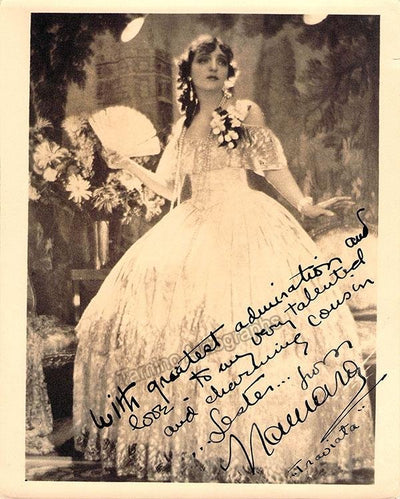 With greatest admiration and
love - to my very talented
and charming cousin
"Lester... from
Namara
"Traviata"